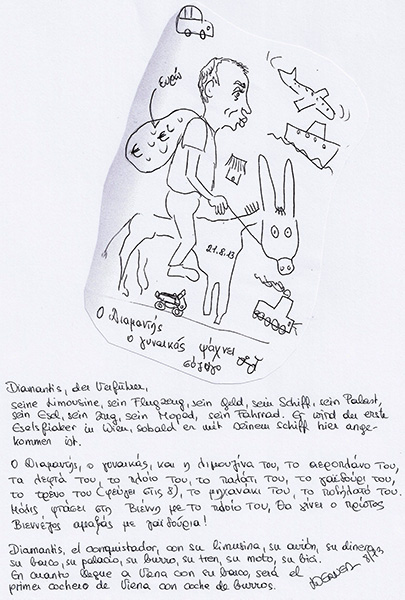 Ευρώ
€ € €
21.8.13
Ο Διαμαντής
ο γυναικάς ψάχνει
Diamantis, der Verführer,
seine Limousine, sein Flugzeug, sein Geld, sein Schiff, sein Palast,
sein Esel, sein Zug, sein Moped, sein Fahrrad. Er wird der erste
Eselsfiaker in Wien, sobald er mit seinem Schiff hier ange-
kommen ist.
Ο Διαμαντής, ο γυναικάς, και η λιμουζίνα του, το αεροπλάνο του,
τα λεφτά του, το πλοίο του, το παλάτι του, το γαϊδούρι του,
το τρένο του (φεύγει στις 8), το μηχανάκι του, το ποδήλατό του.
Μόλις φτάσει στη Βιέννη με το πλοίο του, θα γίνει ο πρώτος
Βιεννέζος αμαξάς με γαϊδούρια!
Diamantis, el conquistador, con su limusina, su avión, su dinero,
su barco, su palacio, su burro, su tren, su moto, su bici.
En cuanto llegue a Viena con su barco, será el
primer cochero de Viena con coche de burros.